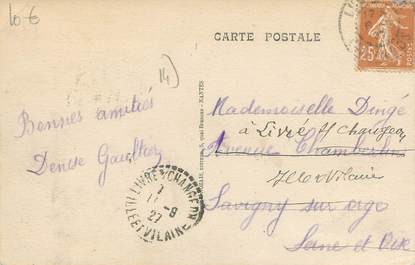 10 €
CARTE POSTALE
14
25c
Bonnes amitiés
Denise Gaultier
Mademoiselle Dingé
à Livré s/ Changeon
Avenue Chamberlin
Ille & Vilaine
Savigny sur orge
Seine et Oise
LIVRE S CHANGEON
11 -8
27
ILLE ET VILAINE